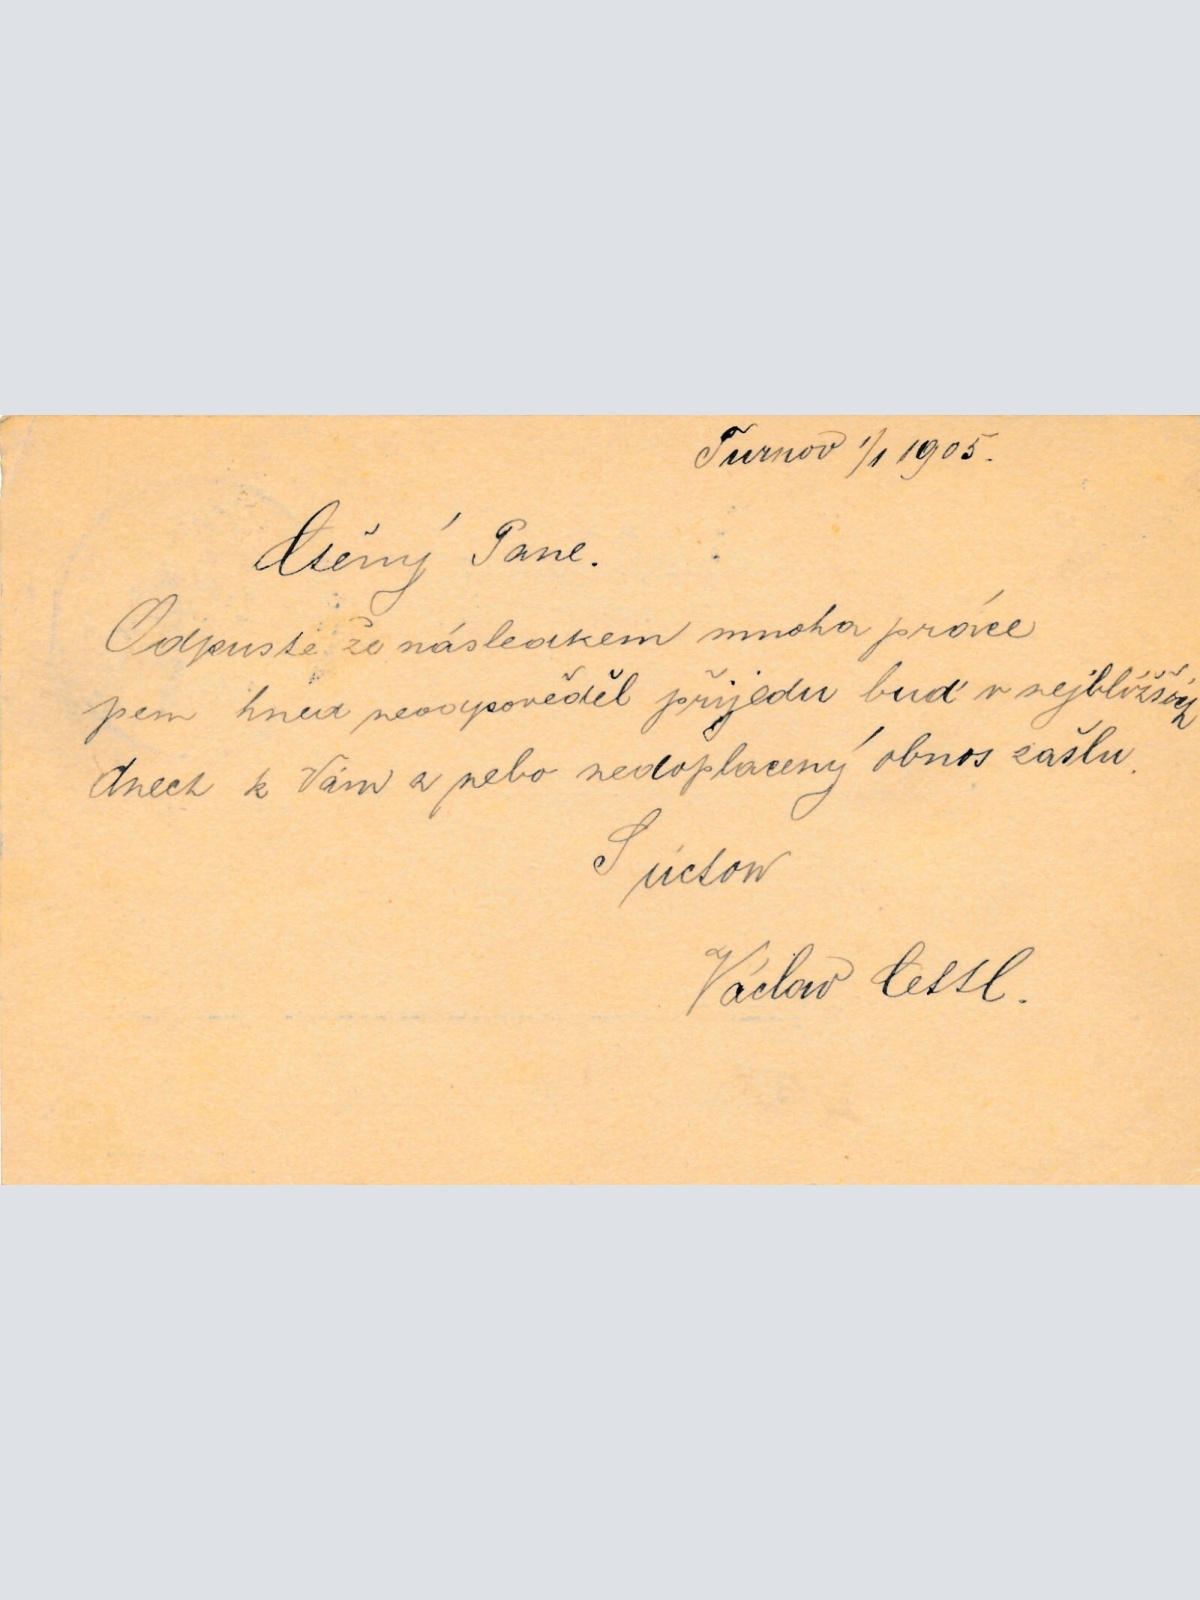 Turnov 1/1 1905.
Ctěný Pane.
Odpuste že následkem mnoha práce
jsem hned neodpověděl přijedu buď v nejbližších
dnech k Vám a nebo nedoplacený obnos zašlu.
S úctou
Václav